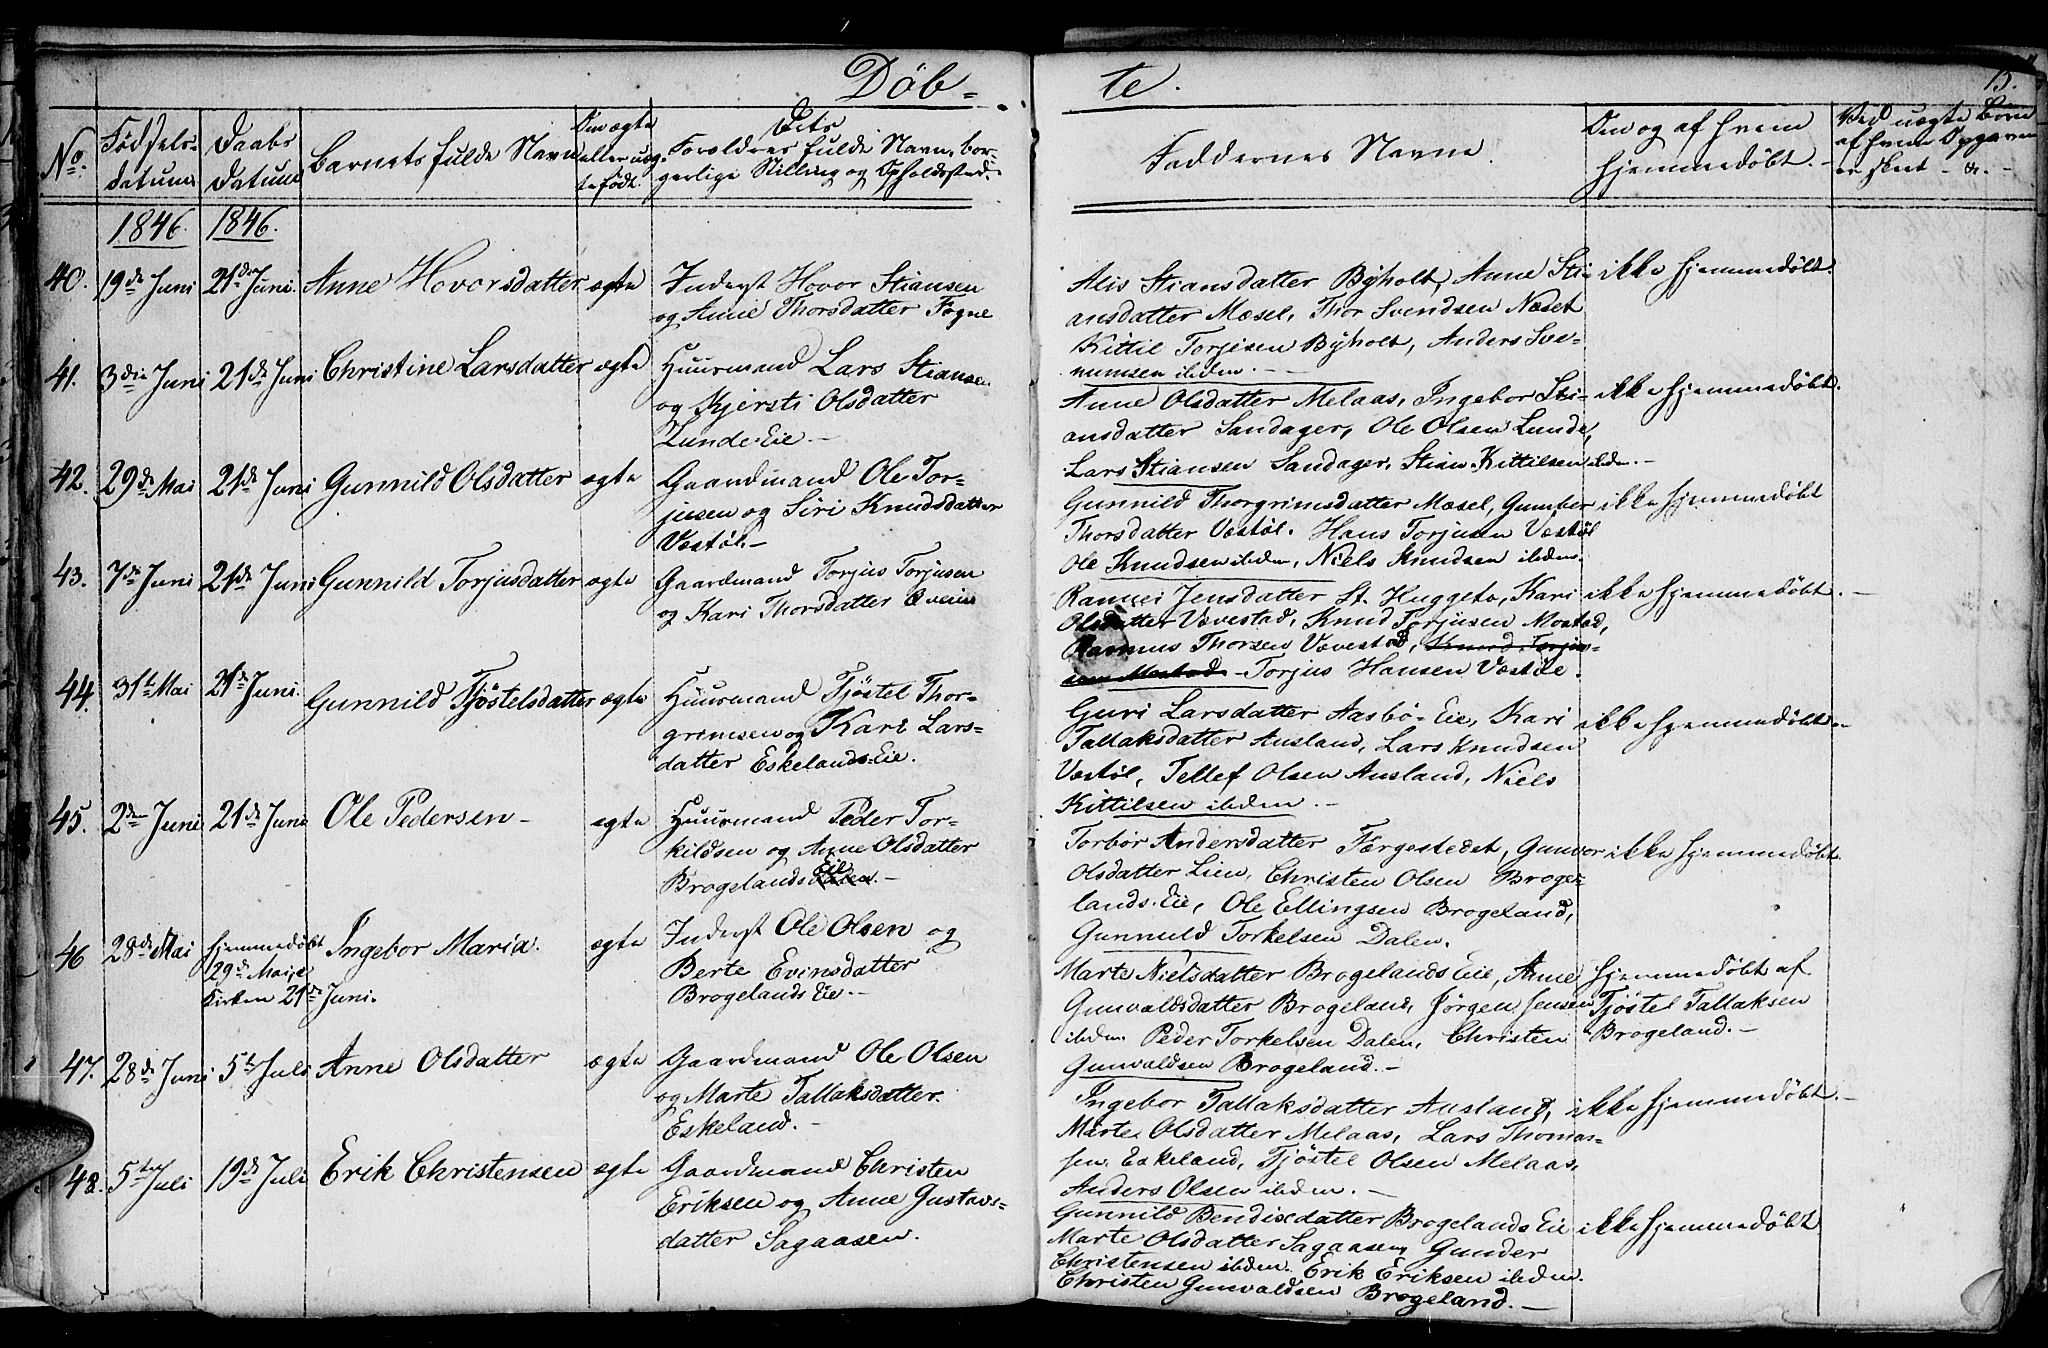 Döb-
te.
No.
Fødsels-
datum
Daabs
Datum
Barnets fulde Navn
Om ægte
eller uæg-
te født.
Dets
Forældres fulde Navn, bor-
gerlige Stilling og Opholdssted.
Faddernes Navne.
Om og af hvem
hjemmedøbt.
Ved uægte Børn
af hvem Opgaven
er skeet - &.
1846.
1846.
40.
19de Juni
21de Juni.
Anne Hovorsdatter
ægte
Inderst Hovor Stiansen
og Anne Thorsdatter Fogne
Alis Stiansdatter Byholt, Anne Sti-
ansdatter Mæsel, Thor Svendsen Næset
Kittil Torjisen Byholt, Anders Sve-
numsen ibidem.
ikke hjemmedøbt.
41.
3die Juni
21de Juni
Christine Larsdatter
ægte
Huusmand Lars Stiansen
og Kjersti Olsdatter
Lunde-Eie.-
Anne Olsdatter Melaas, Ingebor Sti-
ansdatter Sandager, Ole Olsen Lunde,
Lars Stiansen Sandager, Stian Kittilsen ibdm.-
ikke hjemmedøbt.
42.
29de Mai
21de Juni
Gunnild Olsdatter
ægte
Gaardmand Ole Tor-
jusen og Siri Knudsdatter
Væstøl.-
Gunnild Thorgrimsdatter Mæsel, Gumber
Thorsdatter Væstøl. Hans Torjusen Væstøl
Ole Knudsen ibidem, Niels Knudsen ibidem.
ikke hjemmedøbt
43.
7de Juni
21de Juni
Gunnild Torjusdatter
ægte
Gaardmand Torjus Torjusen
og Kari Thorsdatter
Jensdatter St. Huggeto, Kari
Olsdatter Vævestad, Knud Torjusen Mostad,
Rasmus Thorsen Vævestad, Knud Torju-
sen Mostad - Torjus Hansen Væstøl.
ikke hjemmedøbt.
44.
31te Mai
21de Juni.
Gunnild Tjöstelsdatter
ægte
Huusmand Tjöstel Thor-
grimsen og Kari Lars-
datter Eskelands-Eie.
Guri Larsdatter Aasbö-Eie, Kari
Tallaksdatter Ausland, Lars Knudsen
Væstøl, Tellef Olsen Ausland, Niels
Kittilsen ibidem.-
ikke hjemmedøbt.-
45.
2den Juni
21de Juni
Ole Pedersen-
ægte
Huusmand Peder Tor-
kildsen og Anne Olsdatter
Brogelands Eie.-
Torbor Andersdatter Færgestedet, Gunvor
Olsdatter Lien, Christen Olsen Broge-
lands-Eie, Ole Ellingsen Brogeland,
Gunnuld Torkelsen Dalen.
ikke hjemmedøbt.
46
28de Mai
hjemmedøbt
29de Mai, i
Kirken 21de Juni.
Ingebor Maria.
ægte
Inderst Ole Olsen og
Berte Evinsdatter
Brogelands Eie.-
Marte Nielsdatter Brogelands Eie, Anne
Gunvaldsdatter Brogeland, Jørgen Jensen
ibidem. Peder Torkelsen Dalen, Christen
Gunvaldsen Brogeland.-
hjemmedøbt af
Tjöstel Tallaksen
Brogeland.-
47.
28de Juni
5te Juli
Anne Olsdatter
ægte
Gaardmand Ole Olsen
og Marte Tallaksdatter.
Eskeland.-
Ingebor Tallaksdatter Ausland,
Marte Olsdatter Melaas, Lars Thomas-
sen Eskeland, Tjöstel Olsen Melaas,
Anders Olsen ibidem.-
ikke hjemmedøbt.-
48.
5te Juli
19de Juli
Erik Christensen
ægte
Gaardmand Christen
Eriksen og Anne Gustavs-
datter Sagaasen.
Gunnild Bendixdatter Brogelands Eie
Marte Olsdatter Sagaasen, Gunder
Christensen ibidem. Erik Eriksen ibidem.
Christen Gunvaldsen Brogeland.-
ikke hjemmedøbt